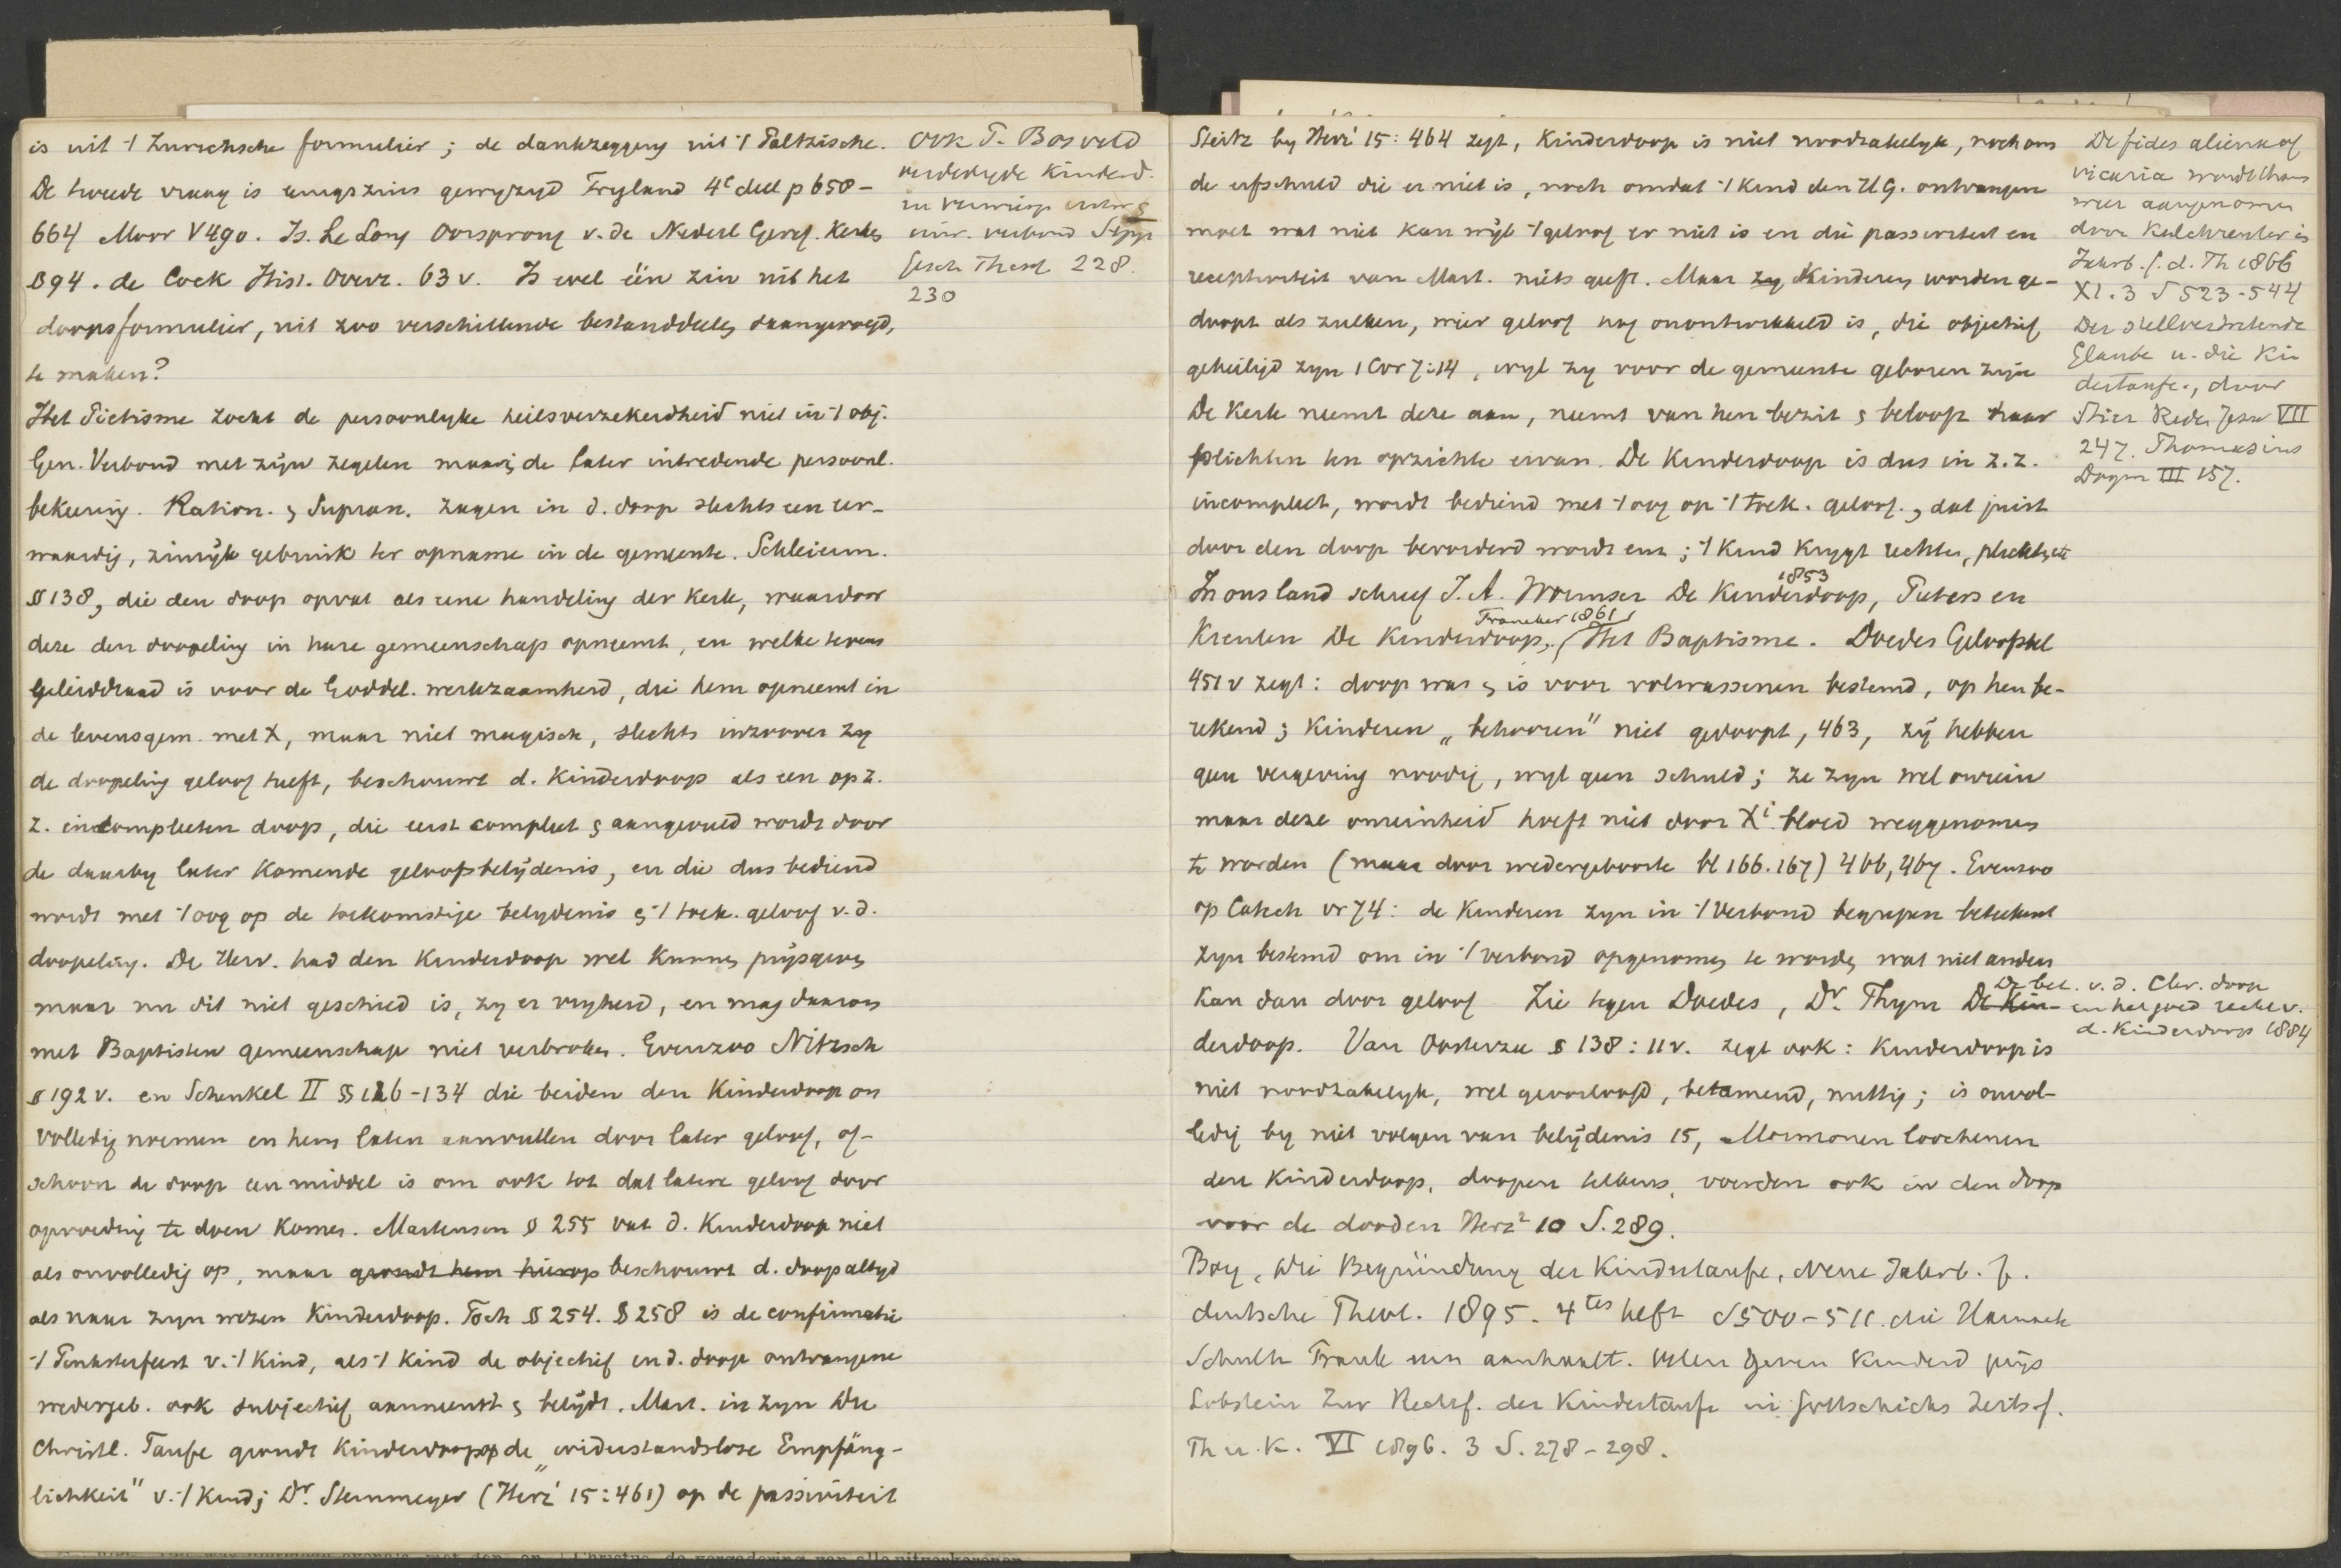 is uit 't Zurichsche formulier; de dankzegging uit 't Paltzische.
De tweede vraag is eenigszins gewijzigd Ypeij 4e deel p 658-
664 Moor V 490. Is. Le Long Oorsprong v. de Nederl Geref. Kerken
894. de Cock Hist. Overz. 63 v. Is wel één zin uit het
doopsformulier, uit zoo verschillende bestanddeelen saamgevoegd,
te maken?
Het Pietisme zocht de persoonlyke heilsverzekerdheid niet in 't obj.
Gen. Verbond met zijn zegelen maar in de later intredende persoonl.
bekeering. Ration. en Supran. zagen in d. doop slechts een eer-
waardig, zinrijk gebruik ter opname in de gemeente. Schleierm.
§ 138, die den doop opvat als eene handeling der Kerk, waardoor
deze den doopeling in hare gemeenschap opneemt, en welke tevens
geleiddraad is voor de Goddel. werkzaamheid, die hem opneemt in
de levensgem. met X, maar niet magisch, slechts inzoover zy
de doopeling geloof heeft, beschouwt d. Kinderdoop als een op z.
z. incompleeten doop, die eerst compleet en aangevuld wordt door
de daarby later komende geloofsbelijdenis, en die dus bediend
wordt met 't oog op de toekomstige belydenis en 't toek. geloof v. d.
doopeling. De Herv. had den Kinderdoop wel kunnen prijsgeven
maar nu dit niet geschied is, zy er vryheid, en mag daarom
met Baptisten gemeenschap niet verbroken. Evenzoo Nitzsch
§ 192 v. en Schenkel II §§ 126-134 die beiden den Kinderdoop on
volledig noemen en hem laten aanvullen door later geloof, of-
schoon de doop een middel is om ook tot dat latere geloof door
opvoeding te doen komen. Martensen § 255 vat d. Kinderdoop niet
als onvolledig op, maar grondt hem hierop beschouwt d. doop altyd
als naar zyn wezen Kinderdoop. Toch § 254. § 258 is de confirmatie
't Pinksterfeest v. 't Kind, als 't Kind de objectief in d. doop ontvangene
wedergeb. ook subjectief aanneemt en belijdt. Mart. in zyn Die
Christl. Taufe grondt Kinderdoop op de „widerstandslose Empfäng-
lichkeit" v. 't Kind; Dr. Steinmeyer (Herz' 15:461) op de passiviteit
Ook P. Bosveld
verdedigde Kinderd.
in
uitw. verbond Sepp
Gesch. Theol. 228.
230
Steitz by Herz' 15:464 zegt, Kinderdoop is niet noodzakelyk, noch om
de erfschuld die er niet is, noch omdat 't Kind den H.G. ontvangen
moet wat niet kan wijl 't geloof er niet is en die passiviteit en
receptiviteit van Mart. niets geeft. Maar zy Kinderen worden ge-
doopt als zulken, wier geloof nog onontwikkeld is, die objectief
geheiligd zyn 1 Cor 7:14, wyl zy voor de gemeente geboren zijn
De Kerk neemt deze aan, neemt van hen bezit en beloopt haar
plichten ten opzichte ervan. De Kinderdoop is dus in z.z.
incompleet, wordt bediend met 't oog op 't toek. geloof, dat juist
door den doop bevorderd wordt enz; 't Kind krygt rechten, plichten etc
In ons land schreef J.A. Wormser De Kinderdoop, 1853 Pieters en
Kreulen De Kinderdoop, Franeker 1861 Het Baptisme. Doedes Geloofsbel
451 v zegt: doop was en is voor volwassenen bestemd, op hen be-
rekend; Kinderen „behooren" niet gedoopt, 463, zij hebben
geen vergeving noodig, wyl geen schuld; ze zyn wel onrein
maar deze onreinheid hoeft niet door Xi bloed weggenomen
te worden (maar door wedergeboorte bl 166.167) 466, 467. Evenzoo
op Catech vr 74: de Kinderen zyn in 't Verbond begrepen beteekent
zyn bestemd om in 't verbond opgenomen te worden wat niet anders
kan dan door geloof Zie tegen Doedes, Dr. Thym De Kin-
derdoop. De bet. v. d. Chr. doop
en het goed recht v.
d. Kinderdoop 1884
Van Oosterzee § 138: 11 v. zegt ook: Kinderdoop is
niet noodzakelyk, wel geoorloofd, betamend, nuttig; is onvol-
ledig by niet volgen van belijdenis 15, Mormonen loochenen
den Kinderdoop, doopen telkens, voerden ook in den doop
voor de dooden Herz2 10 S. 289.
Bory, Die Begründung der Kindertaufe, Neue Jahrb. f.
deutsche Theol. 1895. 4tes heft S 500-511. die Harnack
Schultz Frank enz aanhaalt. Velen geven Kinderd prijs
Lobstein Zur Rechtf. der Kindertaufe in Gottschicks Zeits f.
Th u. K. VI 1896. 3 S. 278-298.
De fides aliena of
vicaria wordt thans
weer aangenomen
door Kalchreuter in
Jahrb. f. d. Th 1866
XI. 3 S 523-544
Der stellvertretende
Glaube u. die Kin
dertaufe., door
Stier Reden Jesu VII
247. Thomasius
Dogm III 157.